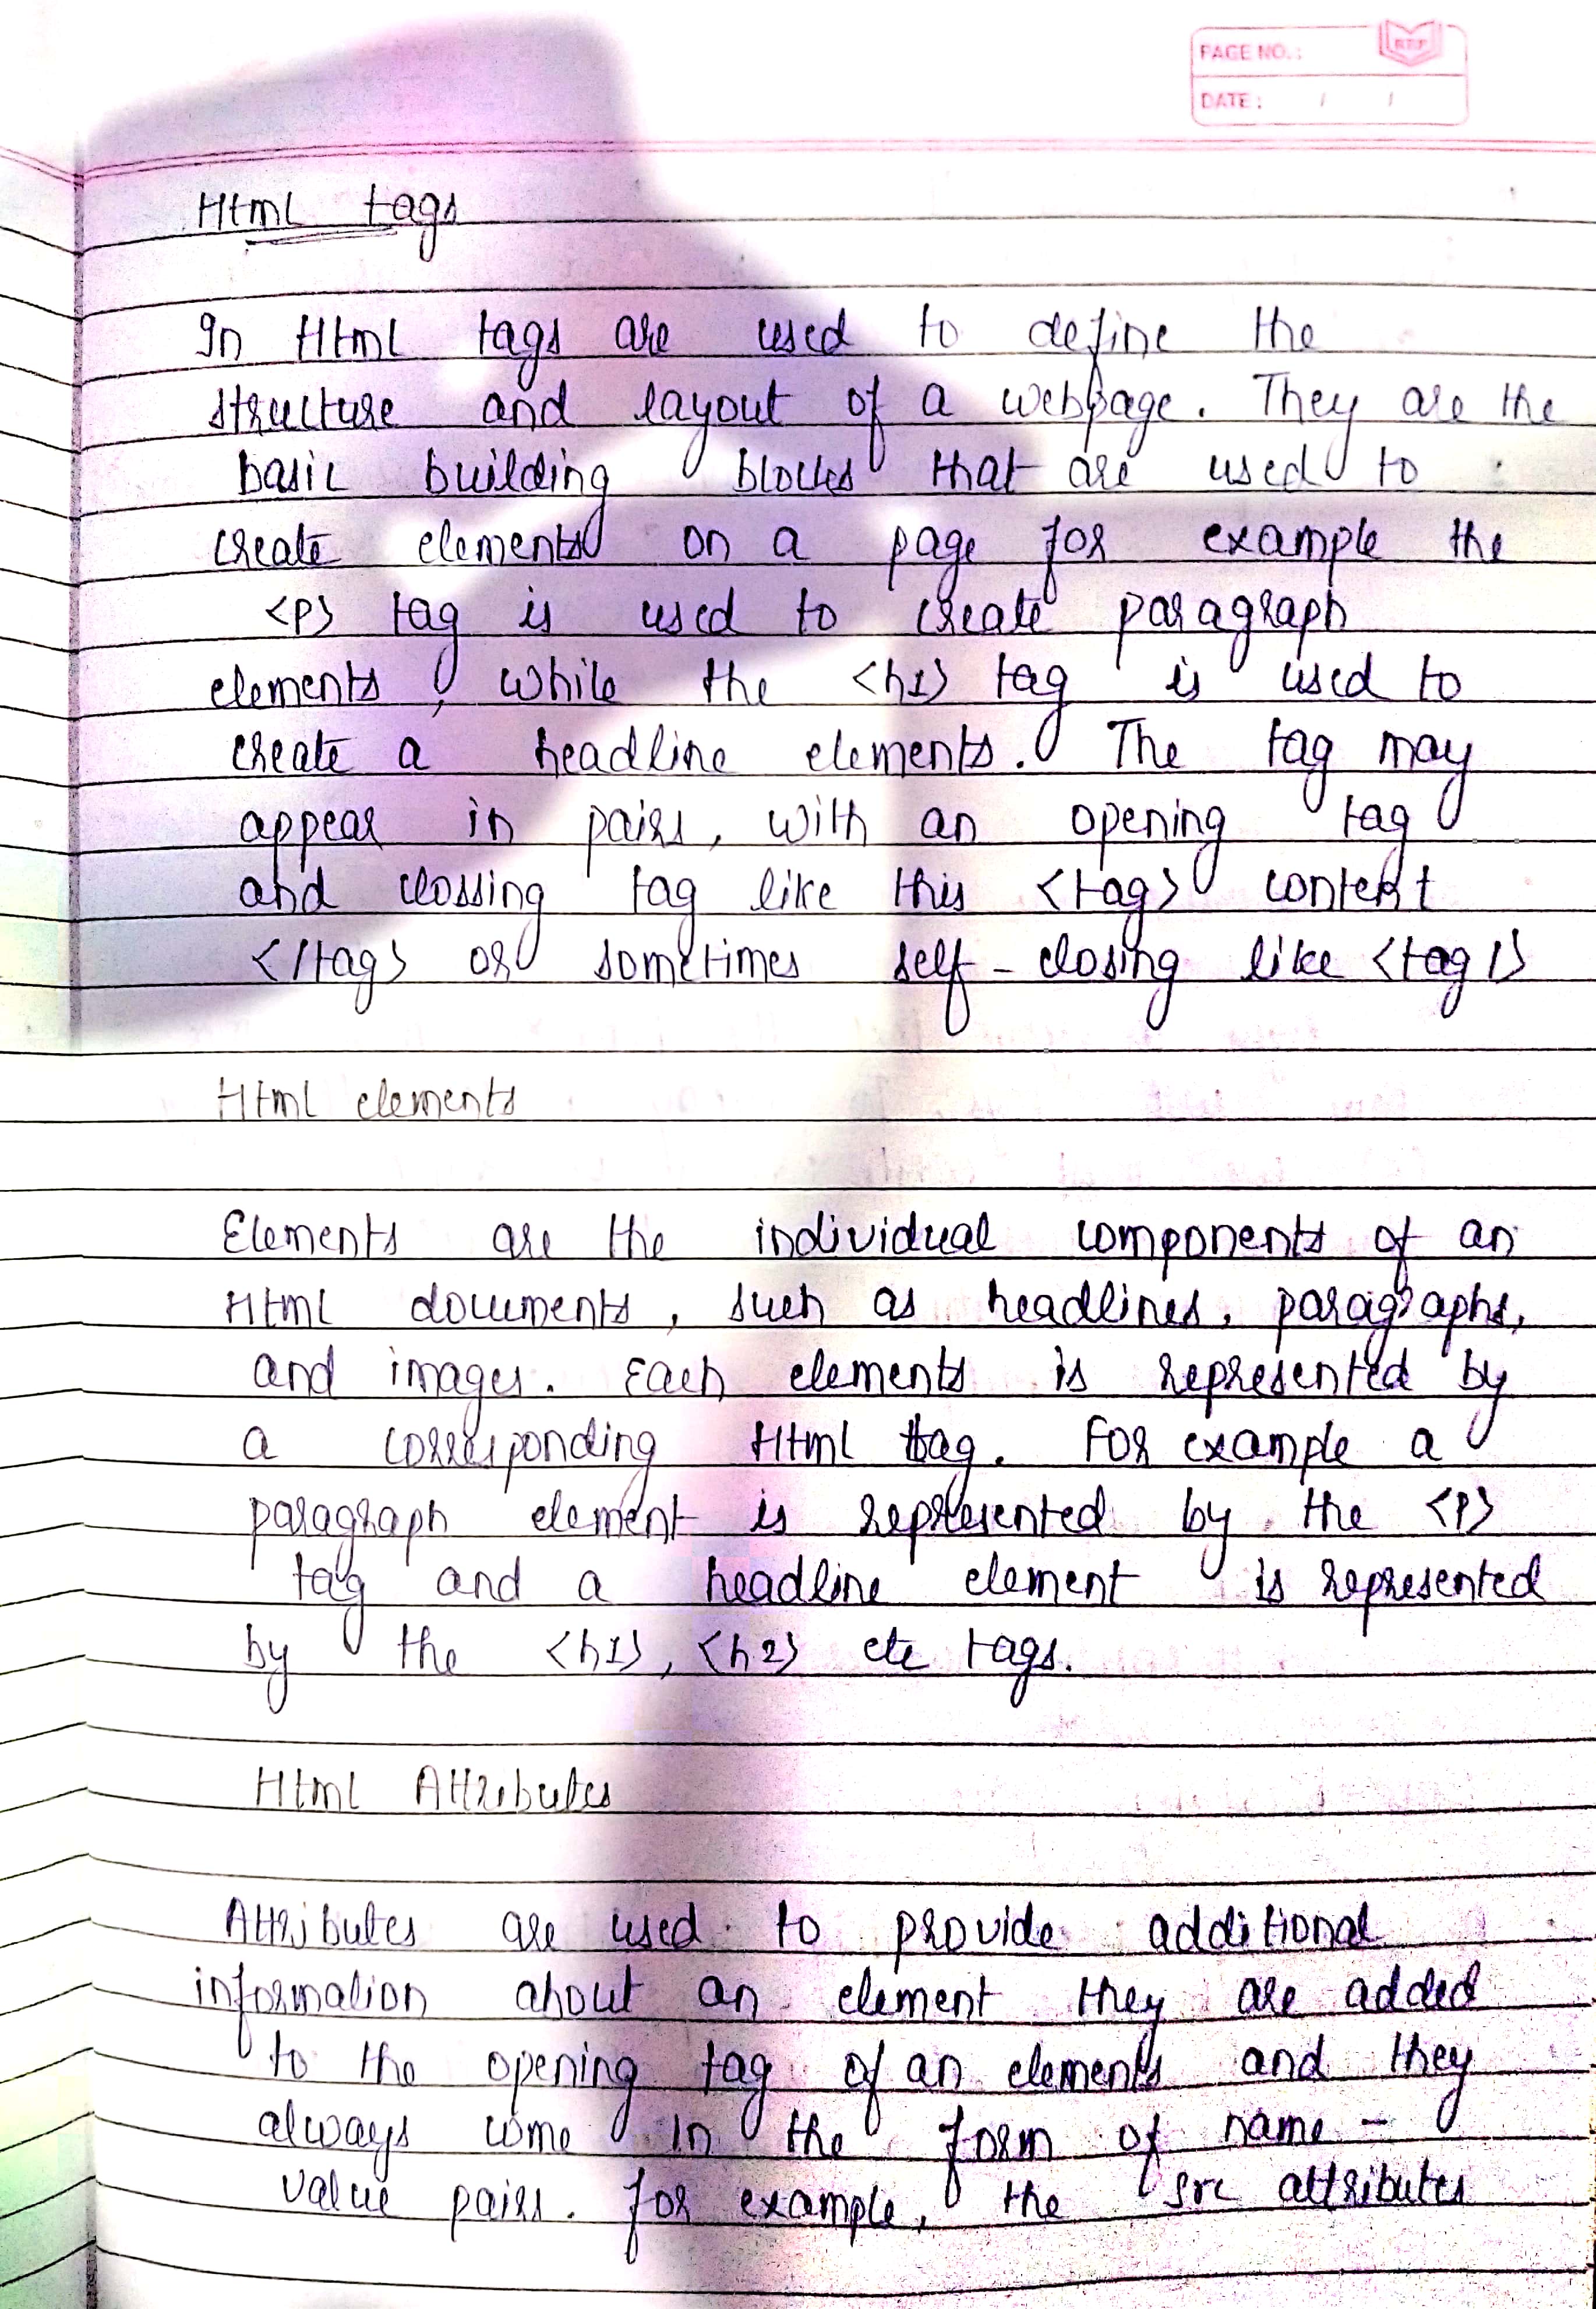 PAGE NO.:
DATE: / /
Html tags
In Html tags are used to define the
structure and layout of a webpage. They are the
basic building blocks that are used to
create elements on a page for example the
<p> tag is used to create paragraph
elements, while the <h1> tag is used to
create a headline elements. The tag may
appear in pairs, with an opening tag
and clossing tag like this <tag> content
</tag> or sometimes self-closing like <tag/>
Html elements
Elements are the individual components of an
Html documents, such as headlines, paragraphs,
and images. Each elements is represented by
a corresponding Html tag. For example a
paragraph element is represented by the <p>
tag and a headline element is represented
by the <h1>, <h2> etc tags.
Html Attributes
Attributes are used to provide additional
information about an element they are added
to the opening tag of an elements and they
always come in the form of name -
value pairs. for example, the src attributes